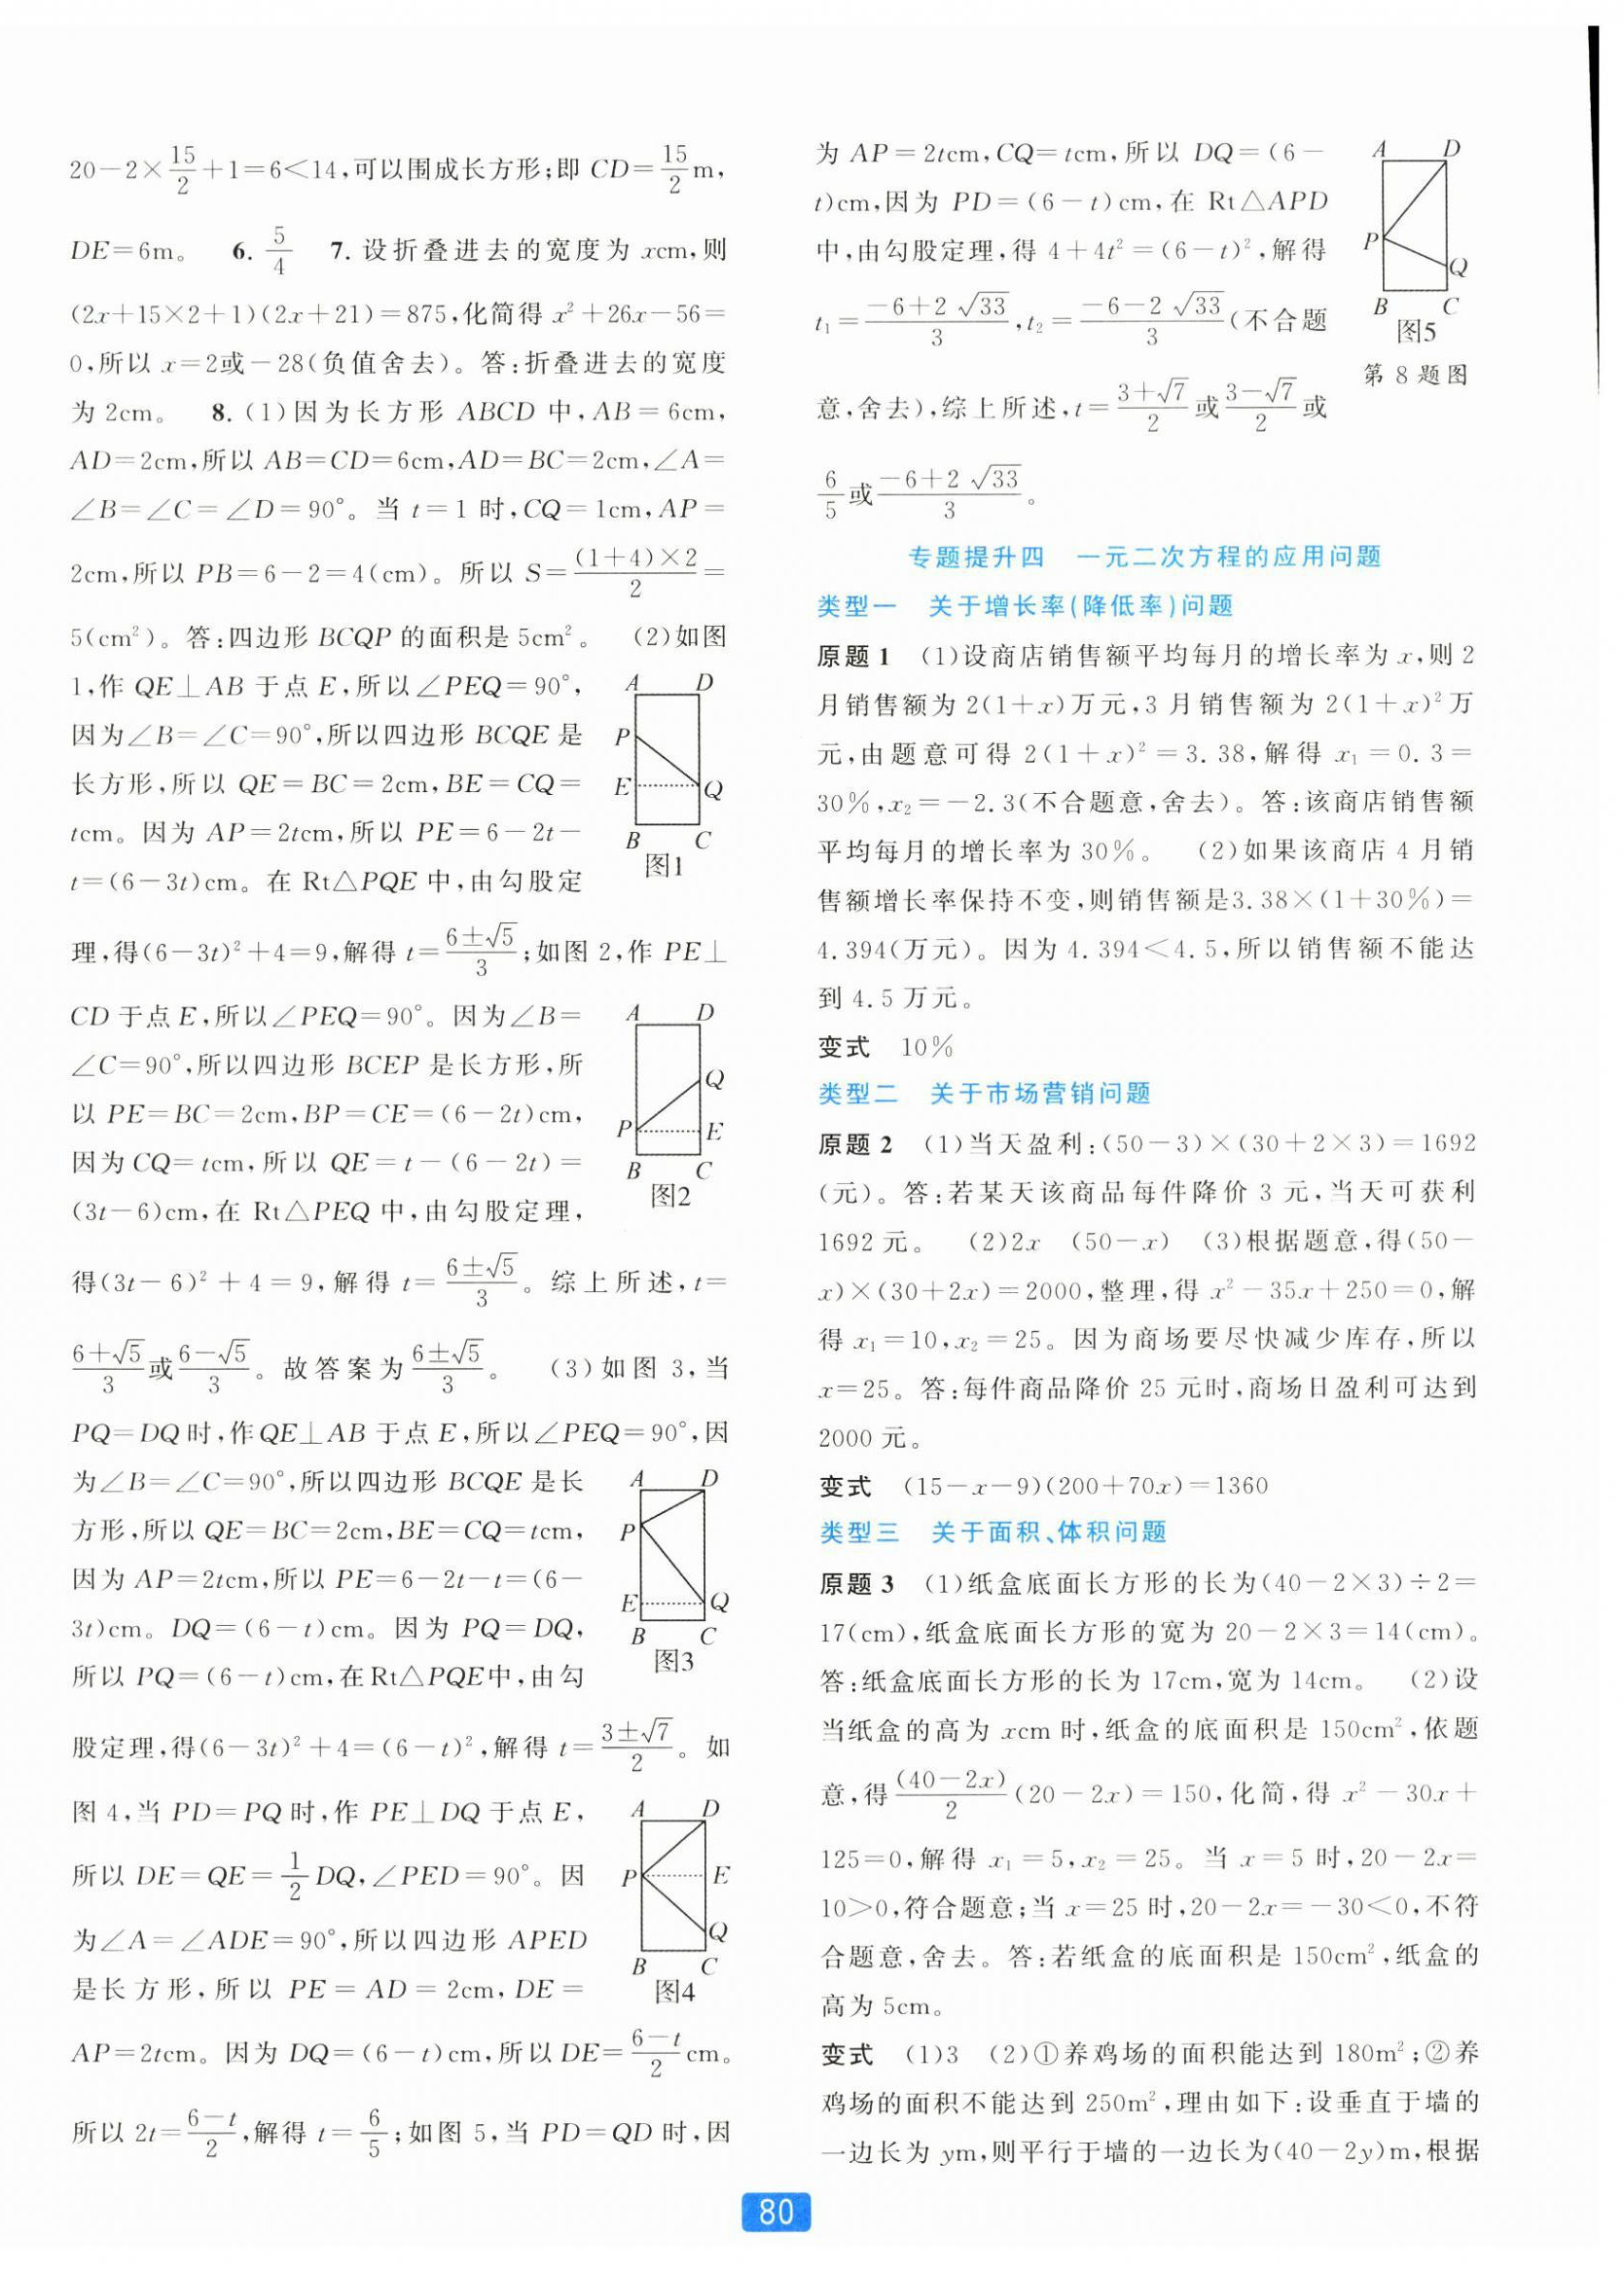 20－2×15/2＋1＝6＜14,可以围成长方形;即 CD＝15/2m,
DE＝6m。 6. 5/4 7. 设折叠进去的宽度为 xcm,则
(2x＋15×2＋1)(2x＋21)＝875,化简得 x²＋26x－56＝
0,所以 x＝2或－28(负值舍去)。答:折叠进去的宽度
为 2cm。 8. (1)因为长方形 ABCD 中,AB＝6cm,
AD＝2cm,所以 AB＝CD＝6cm,AD＝BC＝2cm,∠A＝
∠B＝∠C＝∠D＝90°。当 t＝1 时,CQ＝1cm,AP＝
2cm,所以 PB＝6－2＝4(cm)。所以 S＝(1＋4)×2/2＝
5(cm²)。答:四边形 BCQP 的面积是 5cm²。 (2)如图
1,作 QE⊥AB 于点 E,所以∠PEQ＝90°,
因为∠B＝∠C＝90°,所以四边形 BCQE 是
长方形,所以 QE＝BC＝2cm,BE＝CQ＝
tcm。因为 AP＝2tcm,所以 PE＝6－2t－
t＝(6－3t)cm。在 Rt△PQE 中,由勾股定
A D
P
E Q
B C
图1
理,得(6－3t)²＋4＝9,解得 t＝(6±√5)/3;如图 2,作 PE⊥
CD 于点 E,所以∠PEQ＝90°。因为∠B＝
∠C＝90°,所以四边形 BCEP 是长方形,所
以 PE＝BC＝2cm,BP＝CE＝(6－2t)cm,
因为 CQ＝tcm,所以 QE＝t－(6－2t)＝
(3t－6)cm,在 Rt△PEQ 中,由勾股定理,
A D
Q
P E
B C
图2
得(3t－6)²＋4＝9,解得 t＝(6±√5)/3。综上所述,t＝
(6＋√5)/3或(6－√5)/3。故答案为(6±√5)/3。 (3)如图 3,当
PQ＝DQ 时,作 QE⊥AB 于点 E,所以∠PEQ＝90°,因
为∠B＝∠C＝90°,所以四边形 BCQE 是长
方形,所以 QE＝BC＝2cm,BE＝CQ＝tcm,
因为 AP＝2tcm,所以 PE＝6－2t－t＝(6－
3t)cm。DQ＝(6－t)cm。因为 PQ＝DQ,
所以 PQ＝(6－t)cm,在Rt△PQE中,由勾
A D
P
E Q
B C
图3
股定理,得(6－3t)²＋4＝(6－t)²,解得 t＝(3±√7)/2。如
图 4,当 PD＝PQ 时,作 PE⊥DQ 于点 E,
所以 DE＝QE＝1/2DQ,∠PED＝90°。因
为∠A＝∠ADE＝90°,所以四边形 APED
是长方形,所以 PE＝AD＝2cm,DE＝
A D
P E
Q
B C
图4
AP＝2tcm。因为 DQ＝(6－t)cm,所以 DE＝(6－t)/2cm。
所以 2t＝(6－t)/2,解得 t＝6/5;如图 5,当 PD＝QD 时,因
为 AP＝2tcm,CQ＝tcm,所以 DQ＝(6－
t)cm,因为 PD＝(6－t)cm,在 Rt△APD
中,由勾股定理,得 4＋4t²＝(6－t)²,解得
t₁＝(－6＋2√33)/3,t₂＝(－6－2√33)/3(不合题
意,舍去),综上所述,t＝(3＋√7)/2或(3－√7)/2或
6/5或(－6＋2√33)/3。
A D
P
Q
B C
图5
第 8 题图
专题提升四 一元二次方程的应用问题
类型一 关于增长率(降低率)问题
原题 1 (1)设商店销售额平均每月的增长率为 x,则 2
月销售额为 2(1＋x)万元,3 月销售额为 2(1＋x)²万
元,由题意可得 2(1＋x)²＝3.38,解得 x₁＝0.3＝
30%,x₂＝－2.3(不合题意,舍去)。答:该商店销售额
平均每月的增长率为 30%。 (2)如果该商店 4 月销
售额增长率保持不变,则销售额是3.38×(1＋30%)＝
4.394(万元)。因为 4.394＜4.5,所以销售额不能达
到 4.5 万元。
变式 10%
类型二 关于市场营销问题
原题 2 (1)当天盈利:(50－3)×(30＋2×3)＝1692
(元)。答:若某天该商品每件降价 3 元,当天可获利
1692 元。 (2)2x (50－x) (3)根据题意,得(50－
x)×(30＋2x)＝2000,整理,得 x²－35x＋250＝0,解
得 x₁＝10,x₂＝25。因为商场要尽快减少库存,所以
x＝25。答:每件商品降价 25 元时,商场日盈利可达到
2000 元。
变式 (15－x－9)(200＋70x)＝1360
类型三 关于面积、体积问题
原题 3 (1)纸盒底面长方形的长为(40－2×3)÷2＝
17(cm),纸盒底面长方形的宽为 20－2×3＝14(cm)。
答:纸盒底面长方形的长为 17cm,宽为 14cm。 (2)设
当纸盒的高为 xcm 时,纸盒的底面积是 150cm²,依题
意,得(40－2x)/2(20－2x)＝150,化简,得 x²－30x＋
125＝0,解得 x₁＝5,x₂＝25。当 x＝5 时,20－2x＝
10＞0,符合题意;当 x＝25 时,20－2x＝－30＜0,不符
合题意,舍去。答:若纸盒的底面积是 150cm²,纸盒的
高为 5cm。
变式 (1)3 (2)①养鸡场的面积能达到 180m²;②养
鸡场的面积不能达到 250m²,理由如下:设垂直于墙的
一边长为 ym,则平行于墙的一边长为(40－2y)m,根据
80